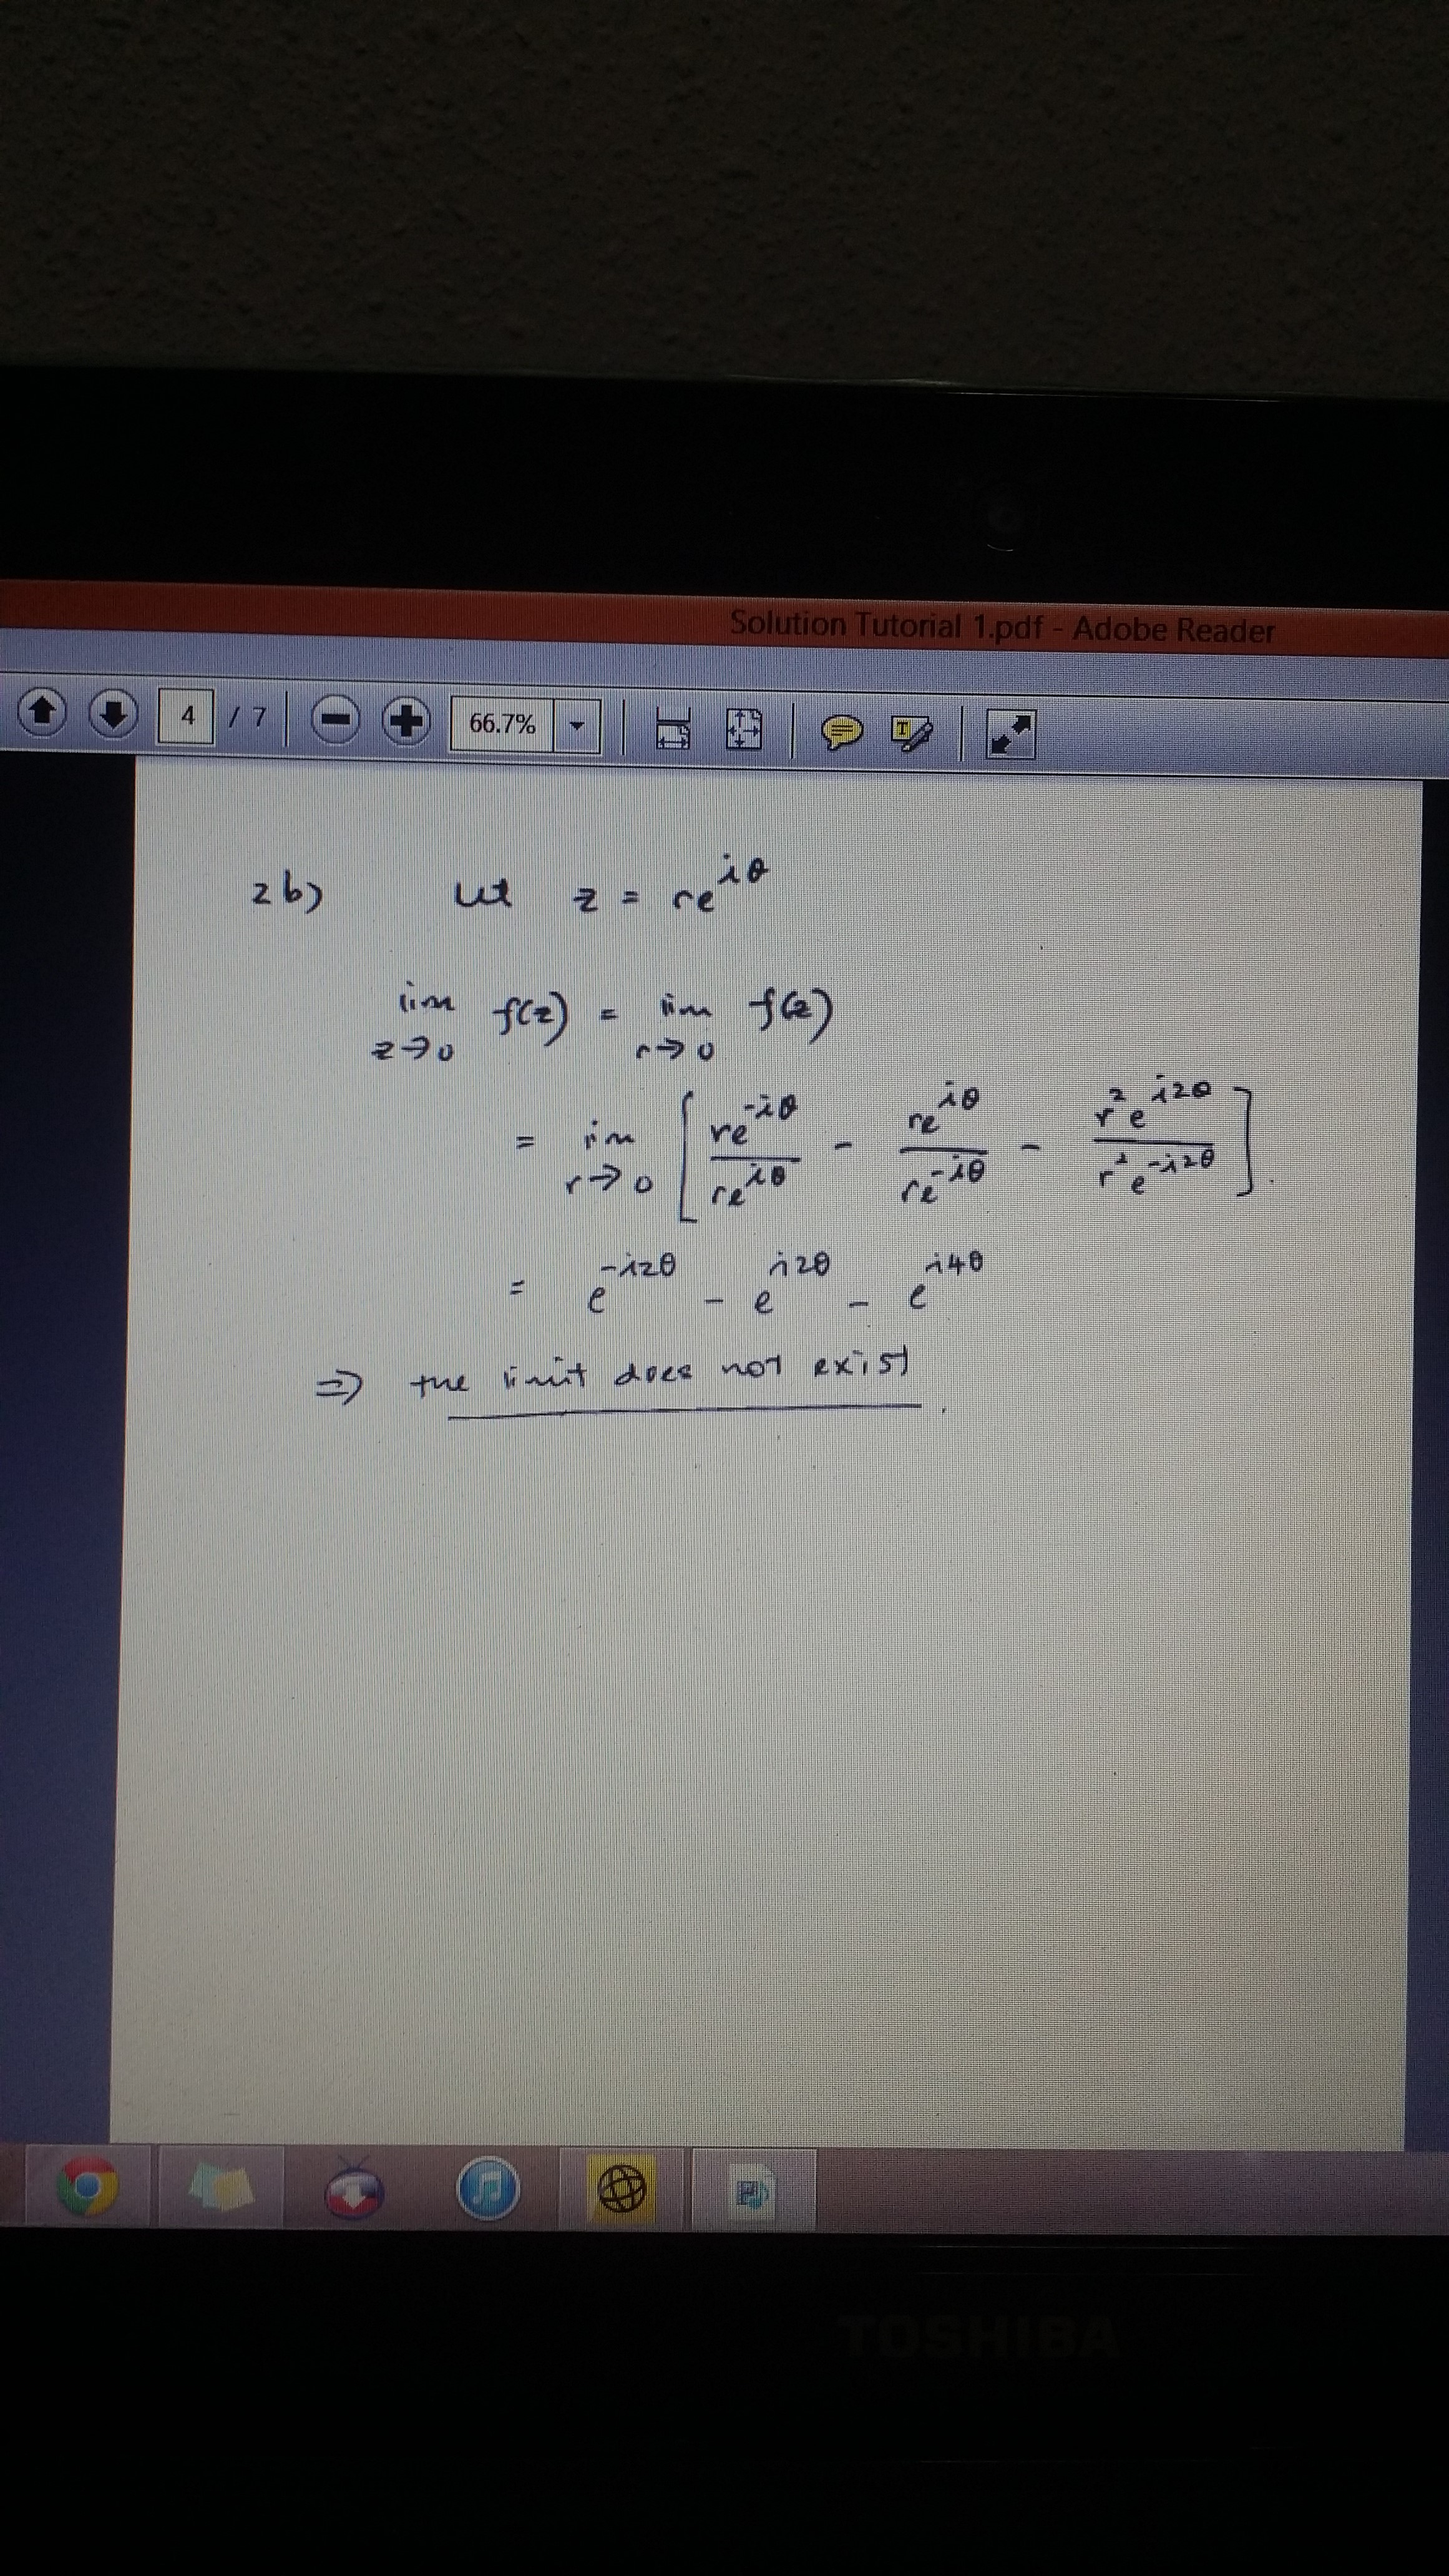 Solution Tutorial 1.pdf - Adobe Reader
4 / 7 66.7%
2b) Let z = re^{iθ}
lim_{z→0} f(z) = lim_{r→0} f(z)
= lim_{r→0} [ re^{-iθ}/re^{iθ} - re^{iθ}/re^{-iθ} - r^2 e^{i2θ}/r^2 e^{-i2θ} ].
= e^{-i2θ} - e^{i2θ} - e^{i4θ}
⇒ the limit does not exist.
TOSHIBA